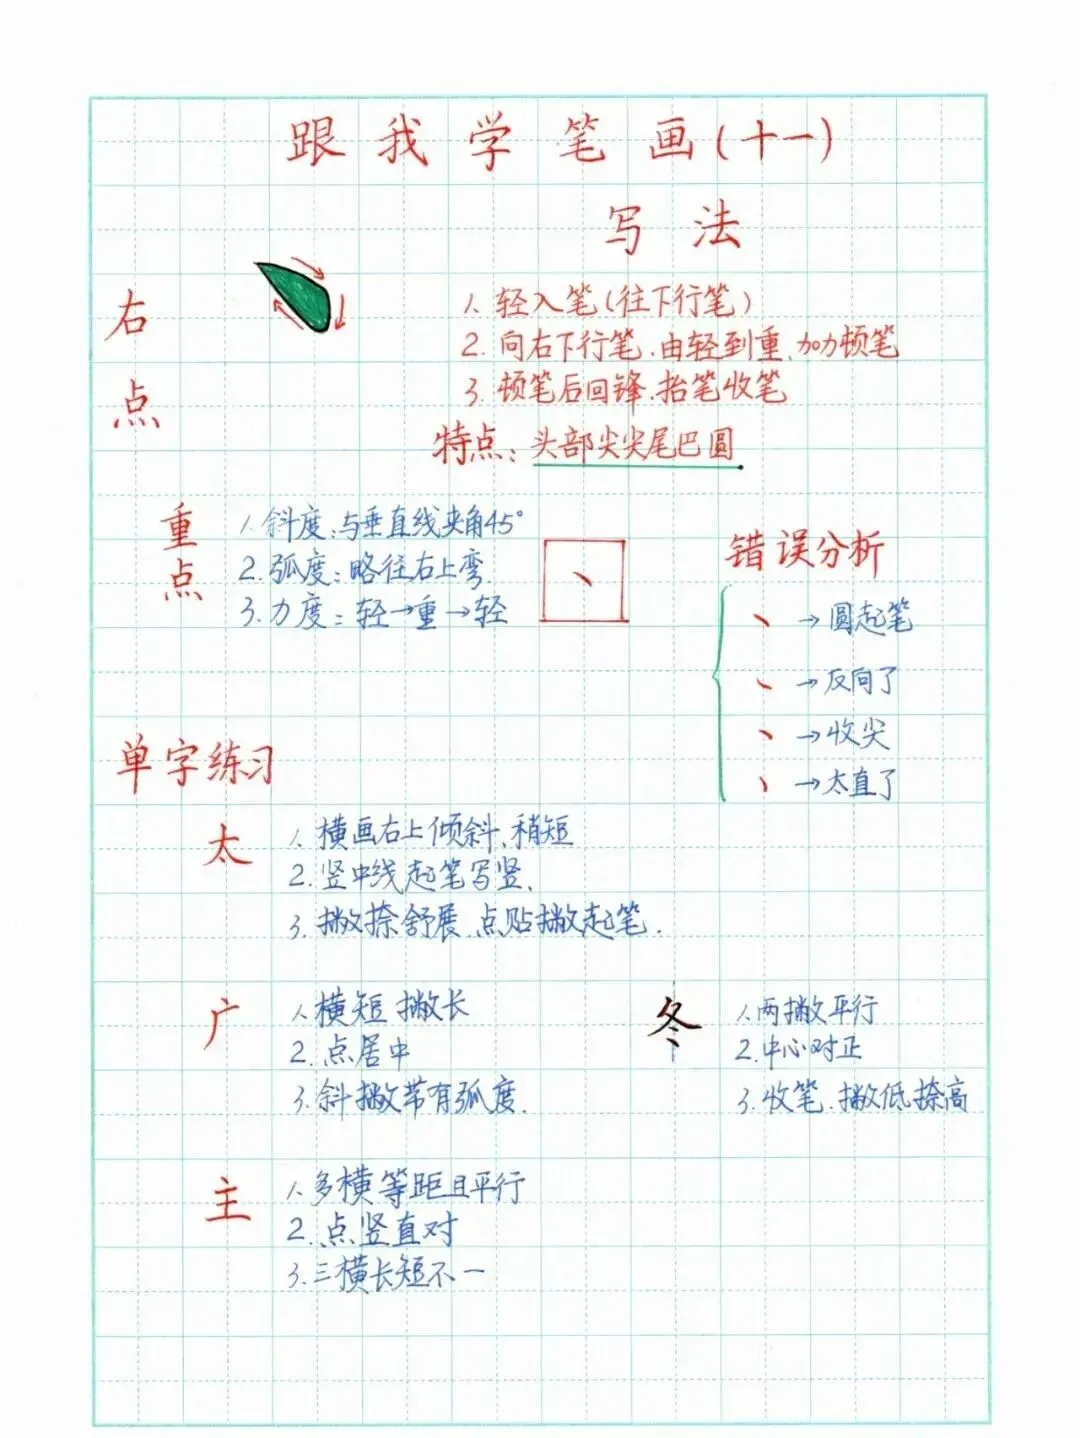 跟我学笔画(十一)
写法
右点
1. 轻入笔(往下行笔)
2. 向右下行笔.由轻到重、加力顿笔
3. 顿笔后回锋.抬笔收笔
特点：头部尖尖尾巴圆
重点
1. 斜度：与垂直线夹角45°
2. 弧度：略往右上弯.
3. 力度：轻→重→轻
错误分析
→圆起笔
→反向了
→收尖
→太直了
单字练习
太
1. 横画右上倾斜、稍短
2. 竖中线起笔写竖.
3. 撇捺舒展.点贴撇起笔.
广
1. 横短 撇长
2. 点居中
3. 斜撇带有弧度.
冬
1. 两撇平行
2. 中心对正
3. 收笔.撇低捺高
主
1. 多横等距且平行
2. 点竖直对
3. 三横长短不一